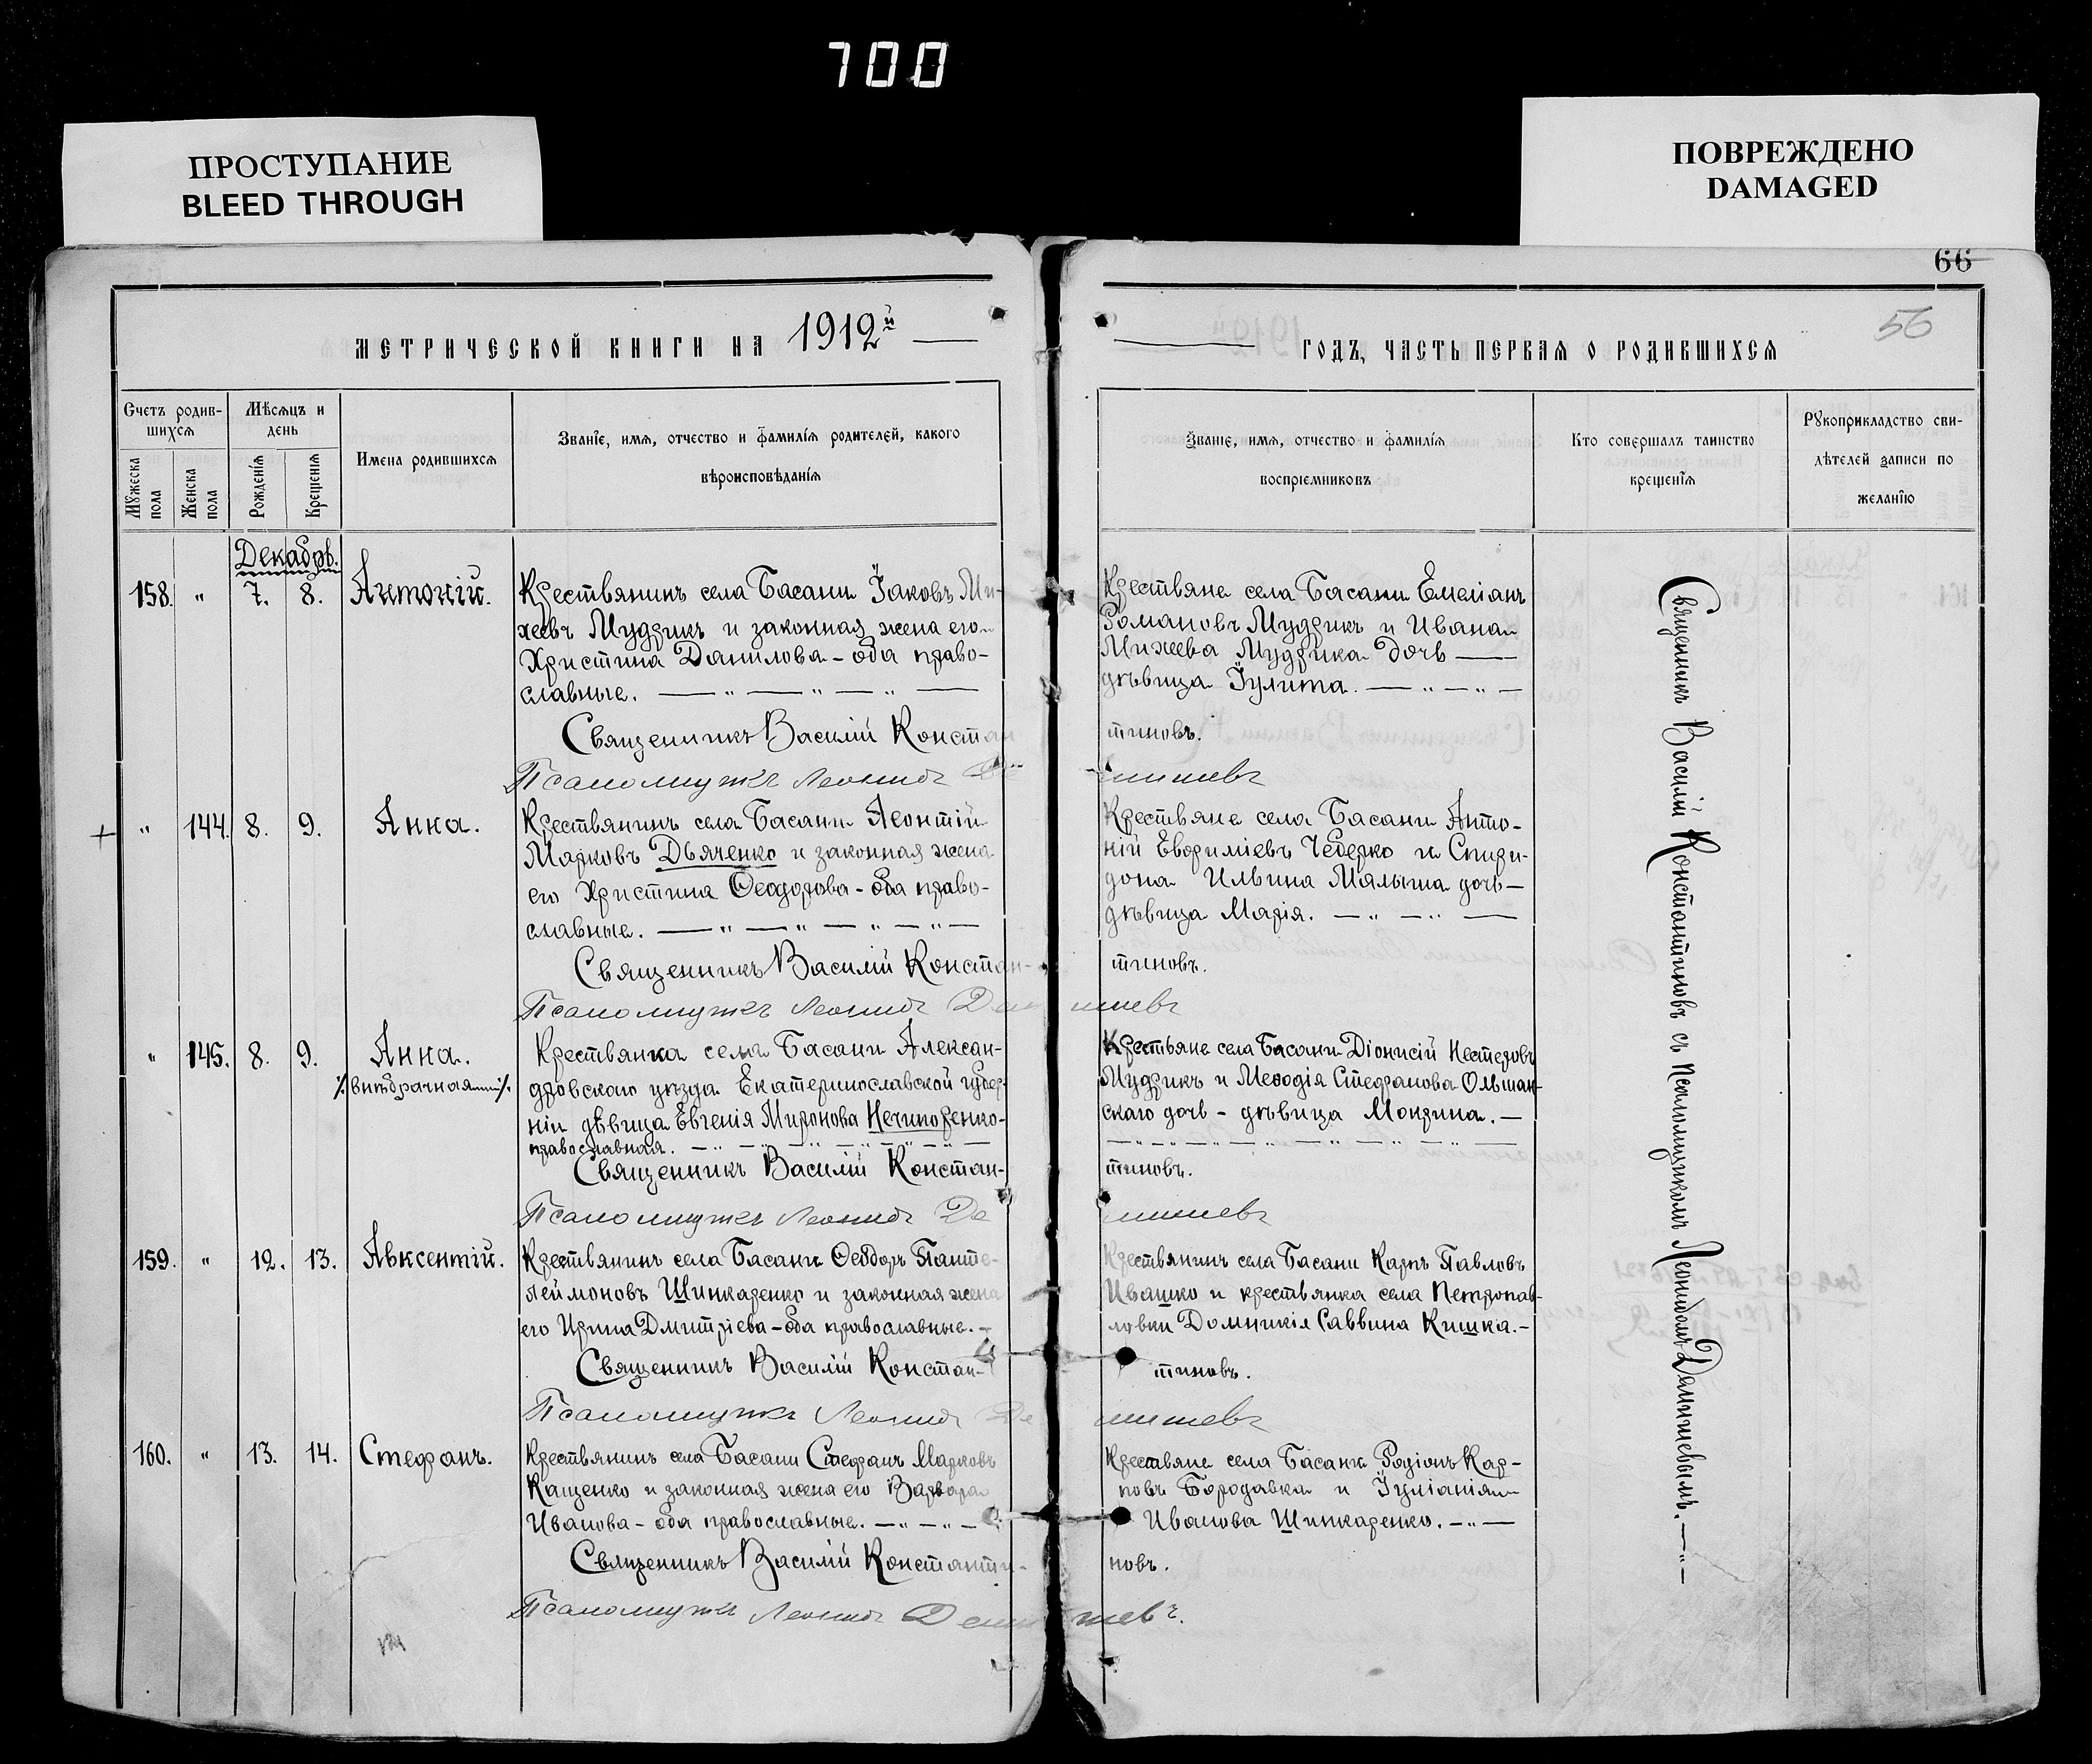 700
ПРОСТУПАНИЕ
BLEED THROUGH
ПОВРЕЖДЕНО
DAMAGED
66
56
МЕТРИЧЕСКОЙ КНИГИ НА 1912й
ГОДЪ, ЧАСТЬ ПЕРВАЯ О РОДИВШИХСЯ
Счетъ родив-
шихся
Мужеска
пола
Женска
пола
Мѣсяцъ и
день
Рожденїя
Крещенїя
Имена родившихся
Званїе, имя, отчество и фамилїя родителей, какого
вѣроисповѣданїя
Званїе, имя, отчество и фамилїя
воспрїемниковъ
Кто совершалъ таинство
крещенїя
Рукоприкладство сви-
дѣтелей записи по
желанїю
Декабрь.
158. " 7. 8. Антоній.
Крестьянинъ села Басани Іаковъ Ми-
хеевъ Мудрикъ и законная жена его
Христина Данилова - оба право-
славные.
Крестьяне села Басани Емеліанъ
Романовъ Мудрикъ и Ивана
Михеева Мудрика дочь
дѣвица Іулита.
Священникъ Василій Констан
тиновъ.
Псаломщикъ Леонидъ
+ " 144. 8. 9. Анна.
Крестьянинъ села Басани Леонтій
Марковъ Дьяченко и законная жена
его Христина Ѳеодорова - оба право-
славные.
Крестьяне села Басани Анто-
ній Евфиміевъ Чеберко и Спири-
дона Ильина Малыша дочь
дѣвица Марія.
Священникъ Василій Констан-
тиновъ.
Псаломщикъ Леонидъ
" 145. 8. 9. Анна.
внѣбрачная
Крестьянка села Басани Алексан-
дровскаго уѣзда Екатеринославской губер-
ніи дѣвица Евгенія Миронова Нечипоренко-
православная.
Крестьяне села Басани Діонисій Нестеровъ
Мудрикъ и Меѳодія Стефанова Ольшан-
скаго дочь - дѣвица
Священникъ Василій Констан-
тиновъ.
Псаломщикъ Леонидъ
159. " 12. 13. Авксентій.
Крестьянинъ села Басани Ѳеодоръ Панте-
леймоновъ Шинкаренко и законная жена
его Ирина Дмитріева - оба православные.
Крестьянинъ села Басани Карпъ Павловъ
Ивашко и крестьянка села Петропав-
ловки Домникія Саввина Кишка.
Священникъ Василій Констан-
тиновъ.
Псаломщикъ Леонидъ
160. " 13. 14. Стефанъ.
Крестьянинъ села Басани Стефанъ Марковъ
Кащенко и законная жена его Варвара
Иванова - оба православные.
Крестьяне села Басани Родіонъ Кар-
повъ Бородавка и Іуліанія
Иванова Шинкаренко.
Священникъ Василій Константи-
новъ.
Псаломщикъ Леонидъ
Священникъ Василій Константиновъ съ Псаломщикомъ Леонидомъ